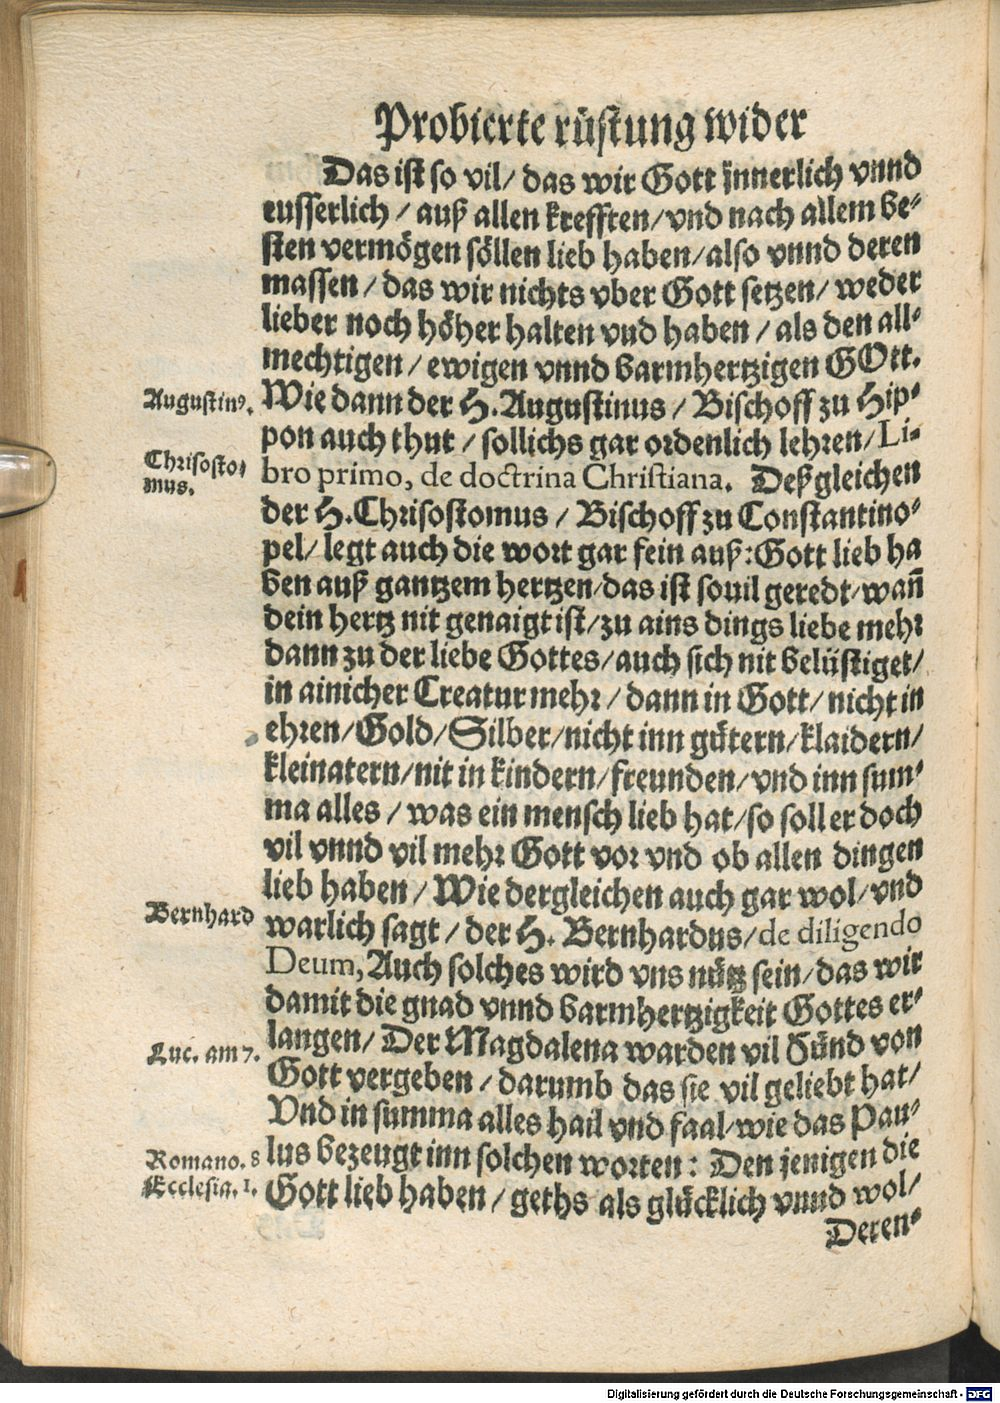 Probierte rüstung wider
Das ist so vil/ das wir Gott jnnerlich vnnd
eusserlich / auß allen krefften/vnd nach allem be-
sten vermögen söllen lieb haben/also vnnd deren
massen / das wir nichts vber Gott setzen/ weder
lieber noch höher halten vnd haben / als den all-
mechtigen / ewigen vnnd barmhertzigen GOtt.
Augustinꝰ. Wie dann der H. Augustinus / Bischoff zu Hip-
pon auch thut / sollichs gar ordenlich lehren/Li-
Chrisosto-
mus.
bro primo, de doctrina Christiana. Deßgleichen
der H. Chrisostomus / Bischoff zu Constantino-
pel/ legt auch die wort gar fein auß: Gott lieb ha
ben auß gantzem hertzen/das ist souil geredt/wañ
dein hertz nit genaigt ist/zu ains dings liebe mehr
dann zu der liebe Gottes/auch sich nit belüstiget/
in ainicher Creatur mehr / dann in Gott/ nicht in
ehren/Gold/Silber/nicht inn gütern/klaidern/
kleinatern/nit in kindern/freunden/vnd inn sum-
ma alles / was ein mensch lieb hat/so soll er doch
vil vnnd vil mehr Gott vor vnd ob allen dingen
lieb haben / Wie dergleichen auch gar wol/vnd
Bernhard
warlich sagt / der H. Bernhardus/de diligendo
Deum, Auch solches wird vns nütz sein/das wir
damit die gnad vnnd barmhertzigkeit Gottes er-
Luc. am 7. langen/ Der Magdalena warden vil Sünd von
Gott vergeben / darumb das sie vil geliebt hat/
Vnd in summa alles hail vnd faal/wie das Pau-
Romano. 8 lus bezeugt inn solchen worten: Den jenigen die
Ecclesia. 1. Gott lieb haben / geths als glücklich vnnd wol/
Deren-
Digitalisierung gefördert durch die Deutsche Forschungsgemeinschaft - DFG